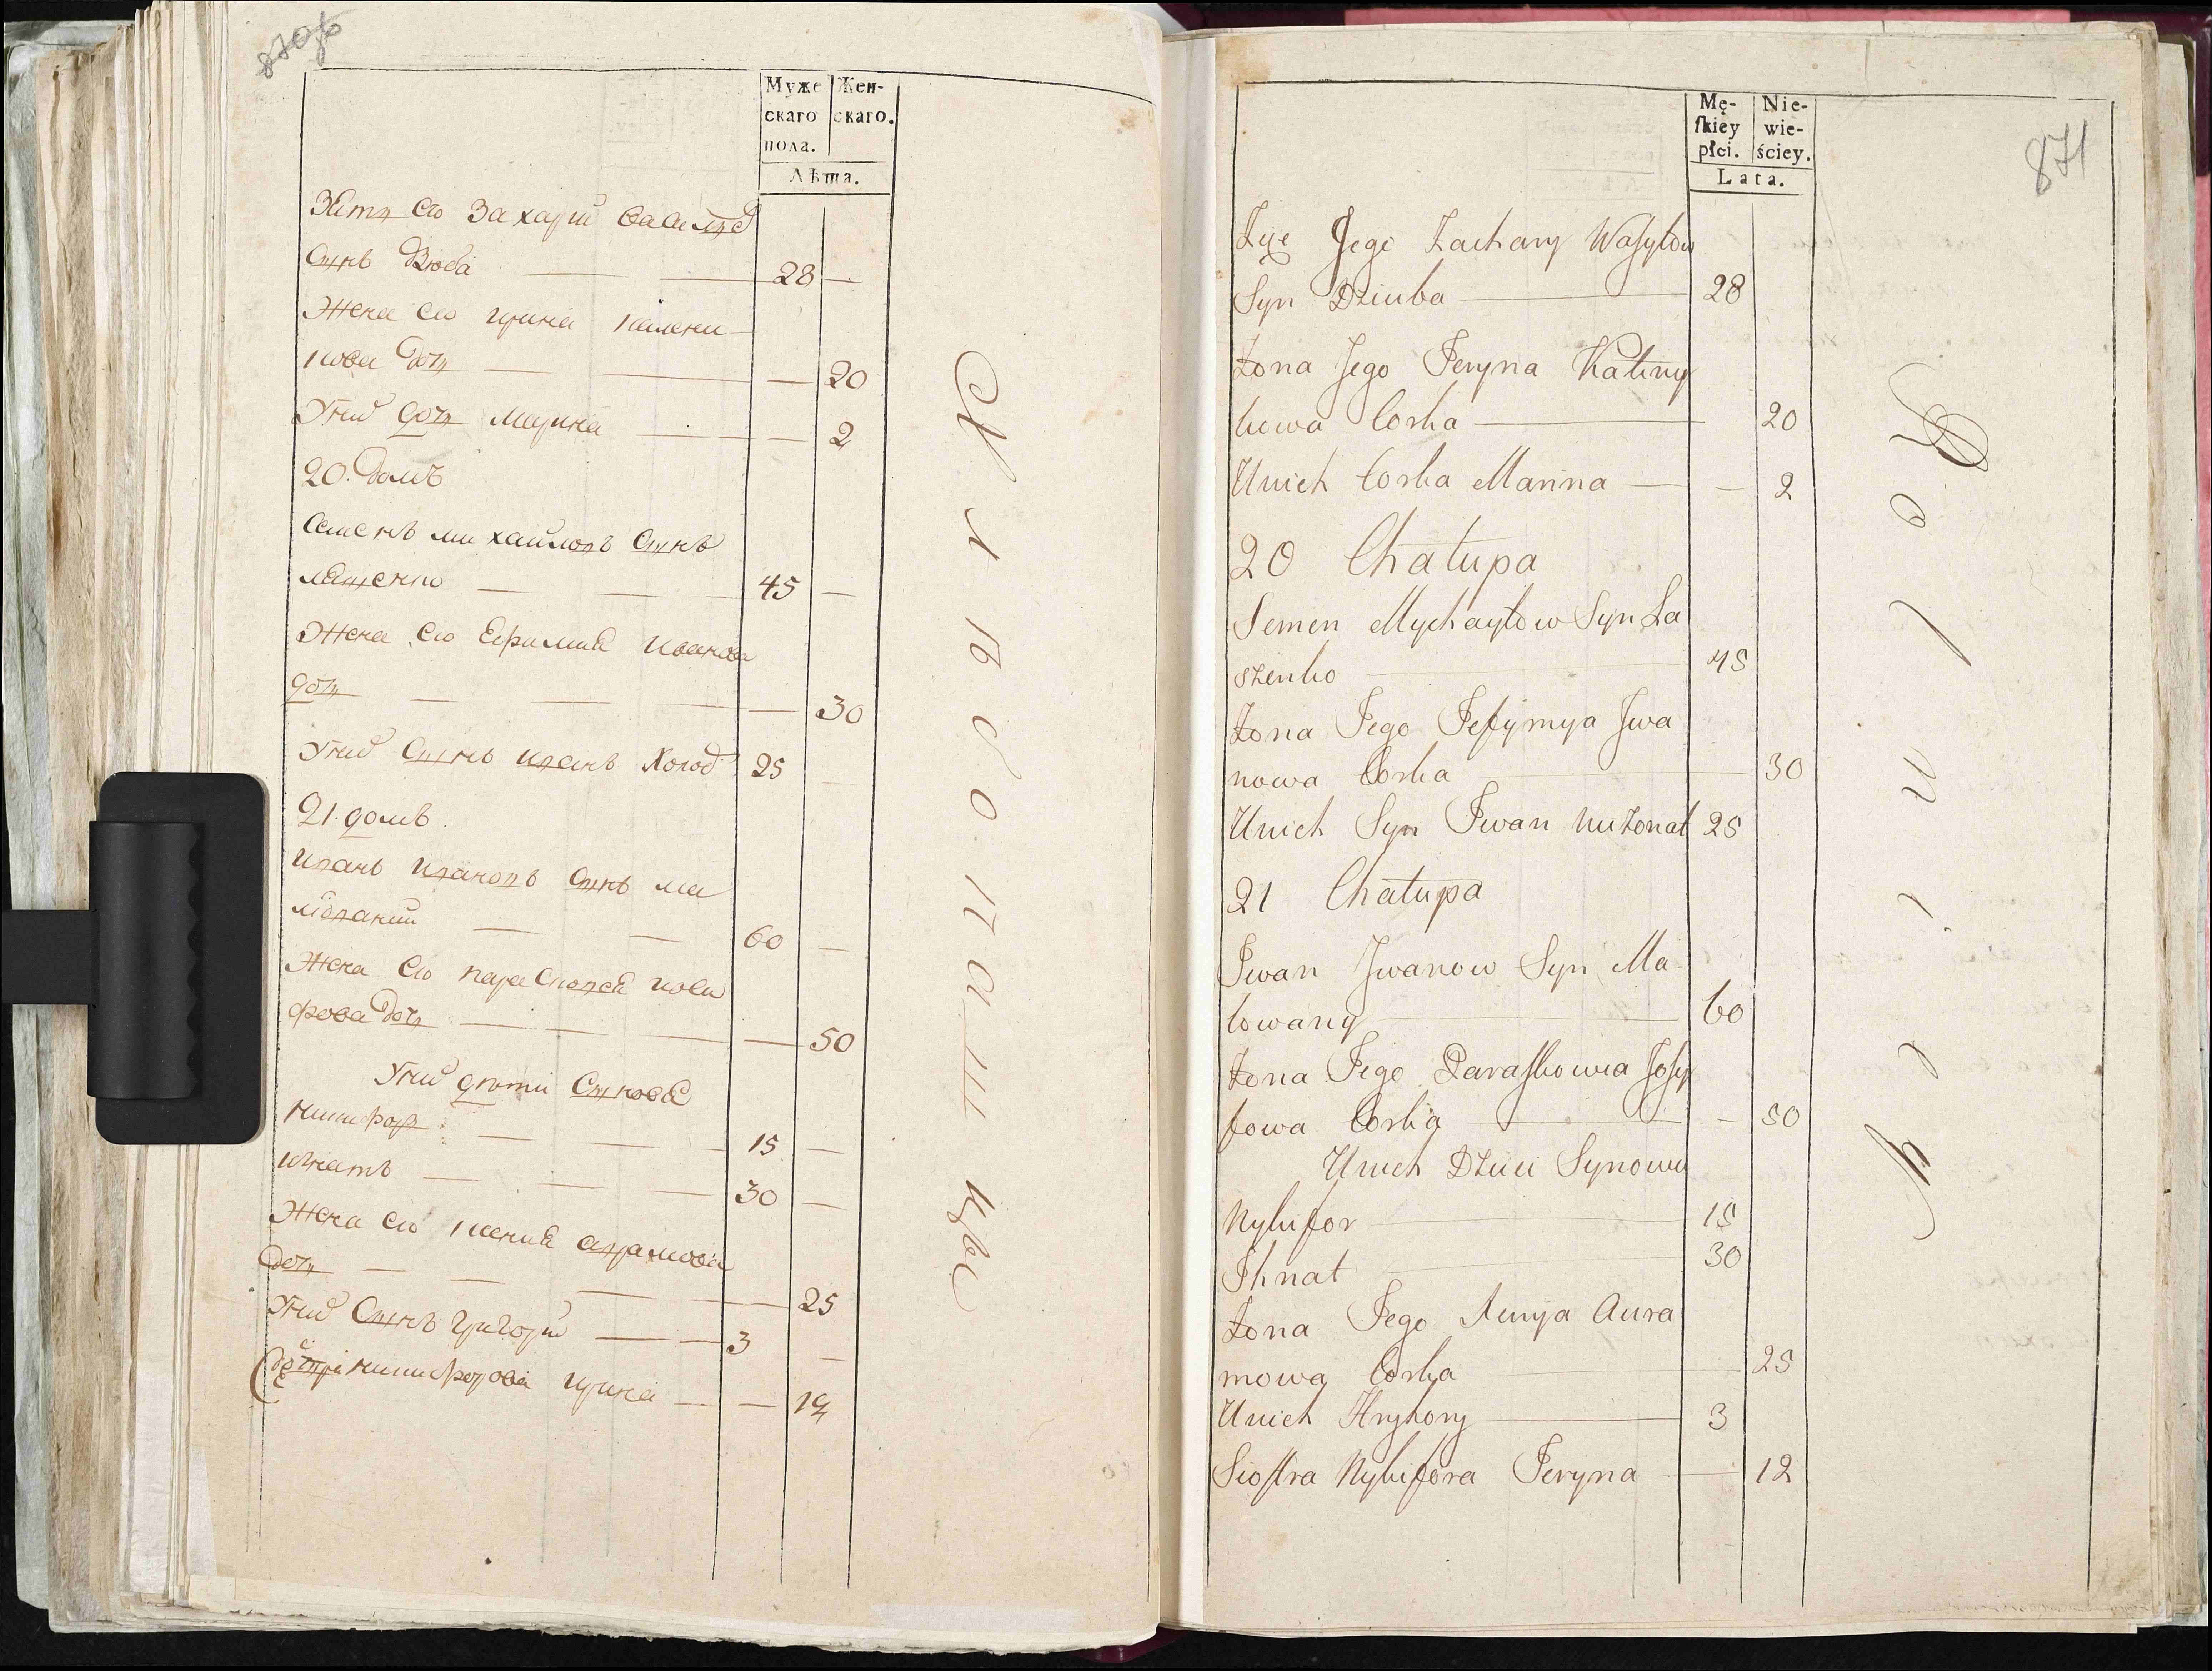 870об
Муже
скаго
пола.
Жен-
скаго.
Лѣта.
Зять его Захарій Василев
Сынъ Дзюба 28 —
Жена его Ирина Калени
кова дочь — 20
У них дочь Марина — 2
20. домъ
Семенъ Михайловъ Сынъ
Лященко 45 —
Жена его Евфимія Иванова
дочь — 30
У них Сынъ Иванъ Холост 25 —
21. домъ
Иванъ Ивановъ Сынъ Ма
лёваний 60 —
Жена его Парасковія Иоси
фова дочь — 50
У них дѣти Синовя
Никифор 15 —
Игнатъ 30 —
Жена его Ксенія Аврамова
дочь — 25
У них Сынъ Григорій 3 —
Сестра Никифорова Ирина — 12
871
Mę-
skiey
płci.
Nie-
wie-
ściey.
Lata.
Zięć Jego Zachary Wasylow
Syn Dziuba 28
Żona Jego Jeryna Kaliny
kowa Corka 20
Unich Corka Marina — 2
20 Chałupa
Semen Mychayłow Syn La
szenko 45
Żona Jego Jefymya Jwa
nowa Corka 30
Unich Syn Jwan nieżonat 25
21 Chałupa
Jwan Jwanow Syn Ma-
lowany 60
Żona Jego Paraskowia Josy
fowa Corka — 50
Unich Dzieci Synowie
Nykifor 15
Ihnat 30
Żona Jego Xenya Awra
mowa Corka 25
Unich Hryhory 3
Siostra Nykifora Jeryna — 12